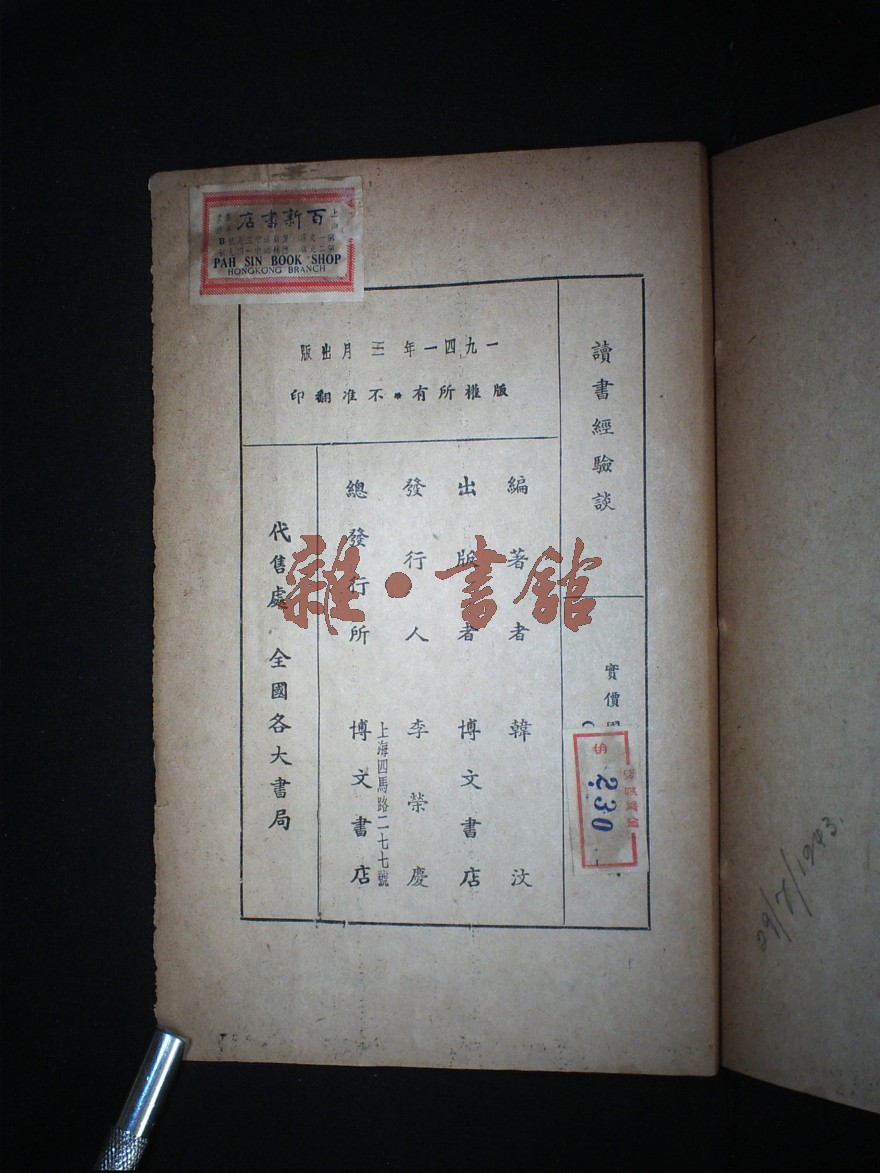 百新書店
PAH SIN BOOK SHOP
HONGKONG BRANCH
讀書經驗談
實價國
230
一九四一年三月出版
版權所有・不准翻印
編著者 韓汶
出版者 博文書店
發行人 李榮慶
總發行所 博文書店
上海四馬路二七七號
代售處 全國各大書局
雜・書館
29/7/1943.